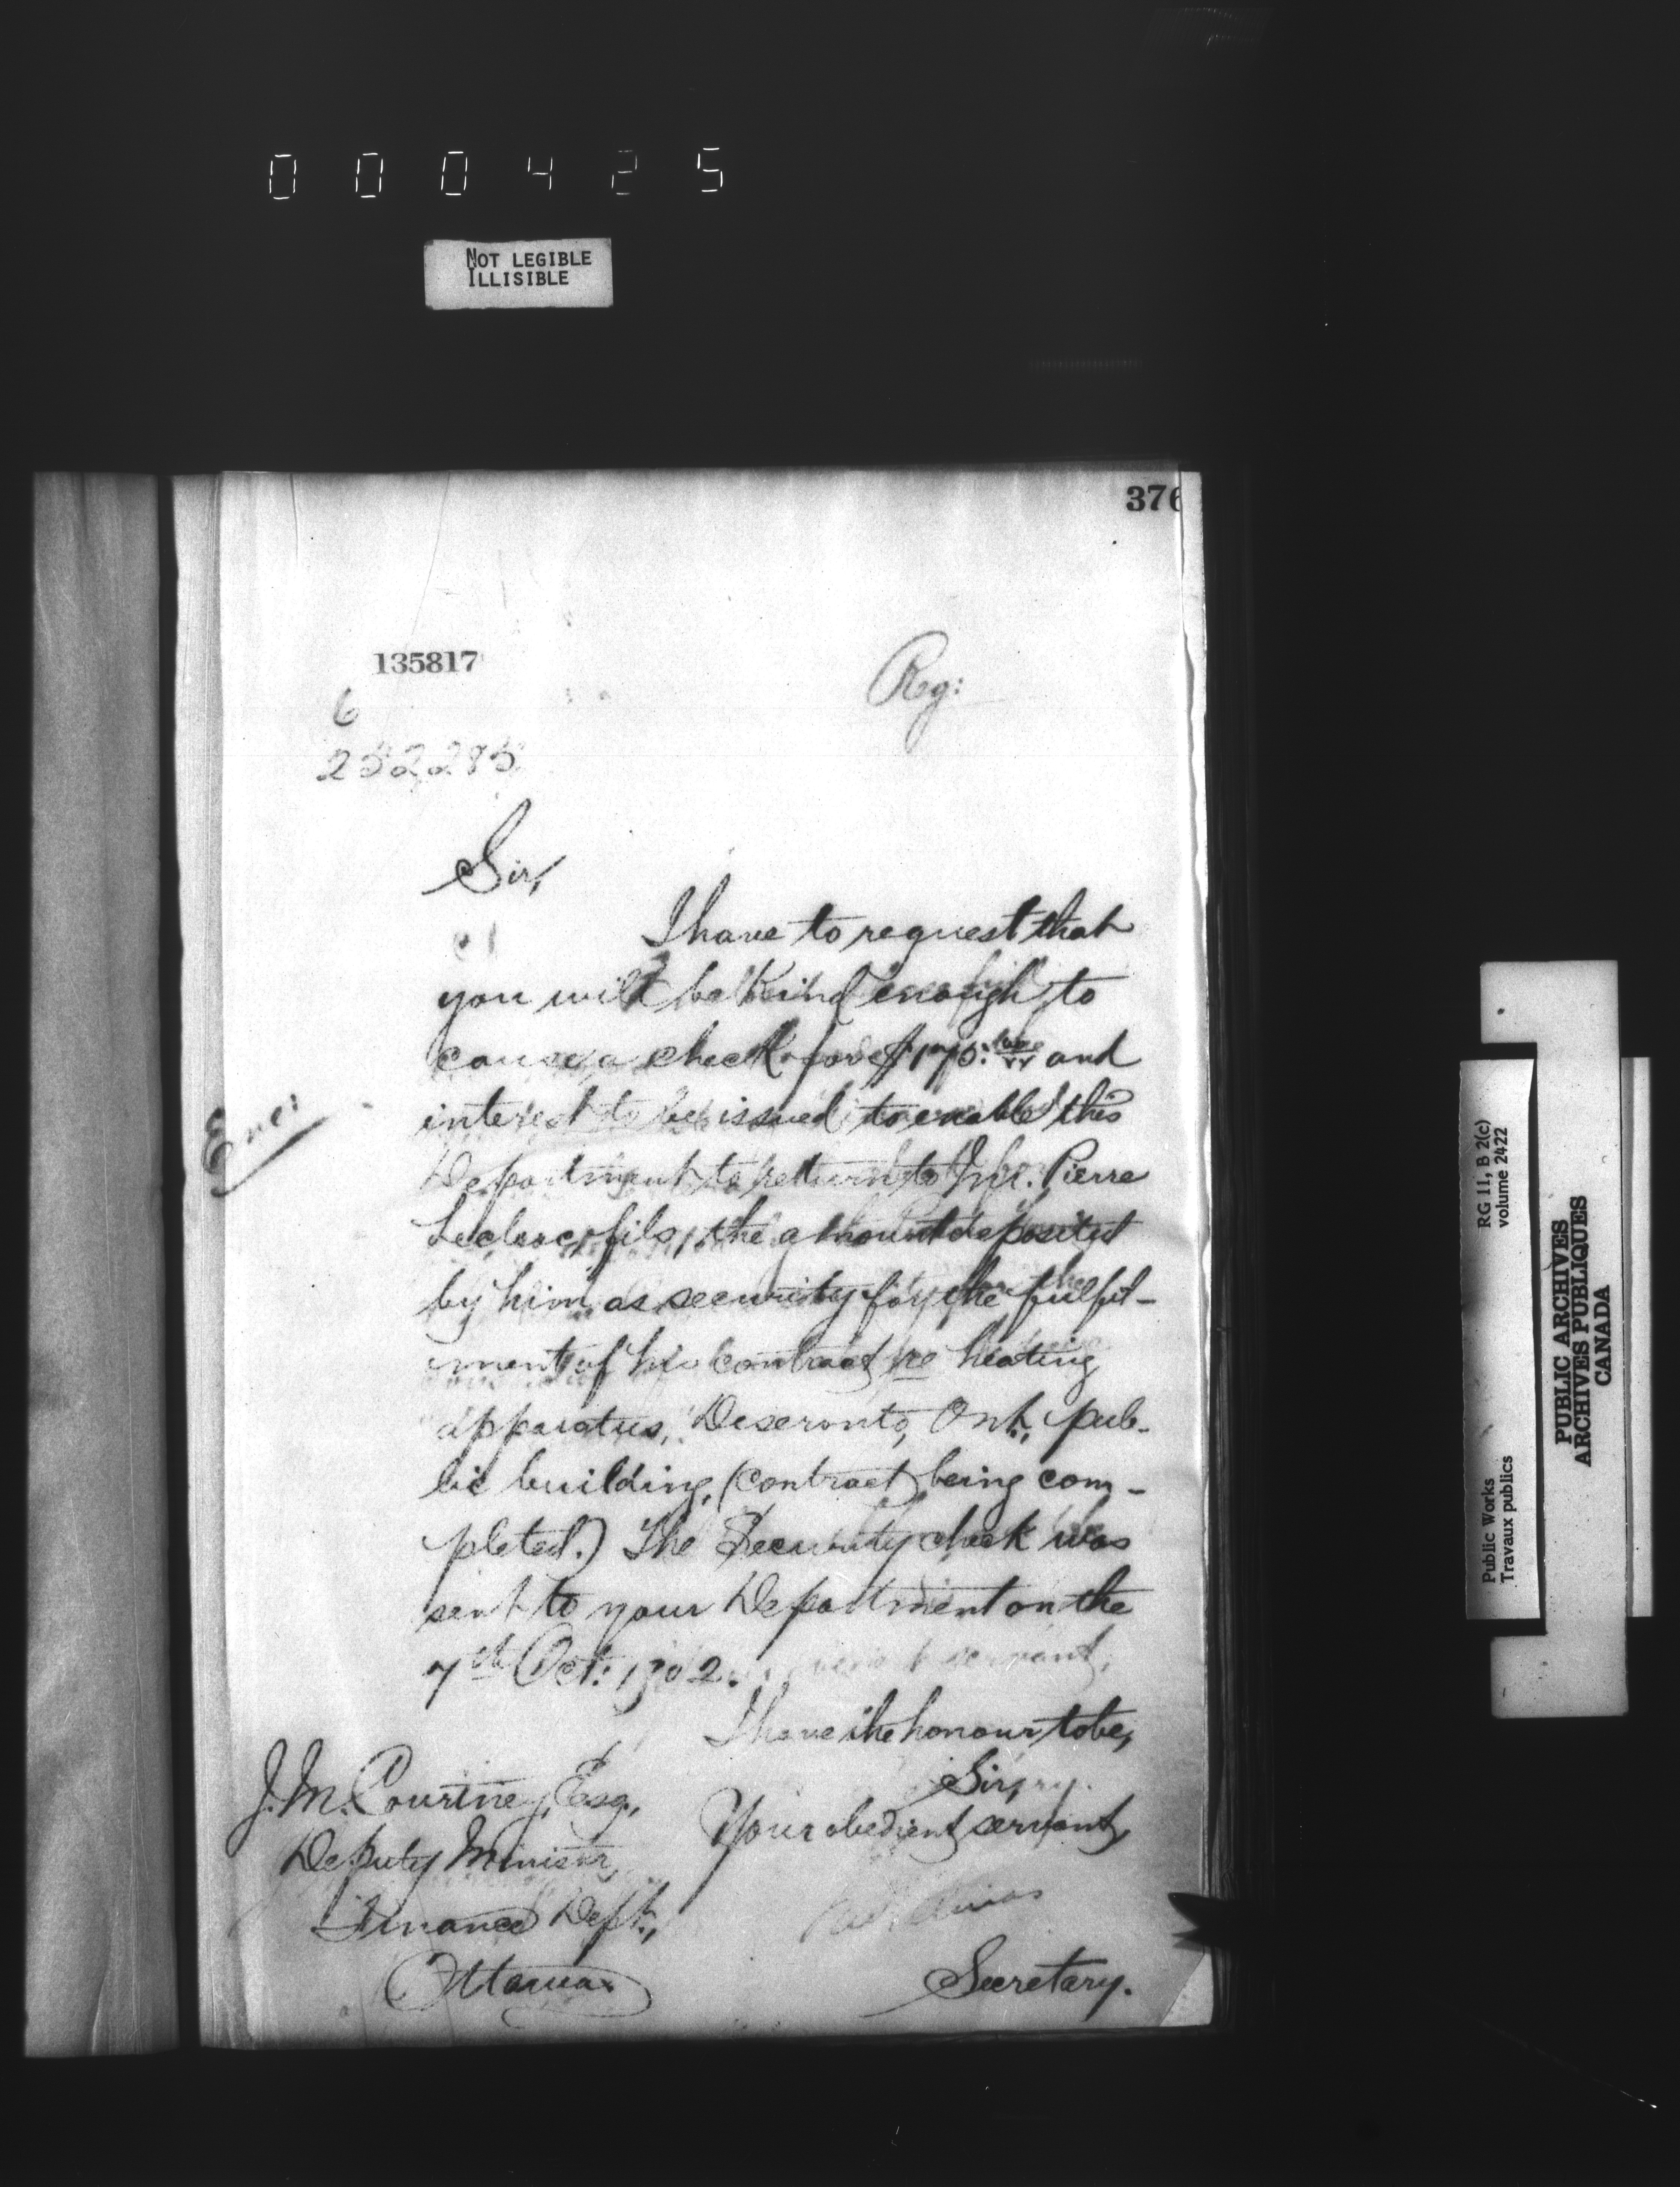 000425
NOT LEGIBLE
ILLISIBLE
376
135817
Reg:
6
252285
Sir,
I have to request that
you will be kind enough to
cause a check for $170. and
interest to be issued to enable this
Department to return to Mr. Pierre
Leclerc, fils, the amount deposited
by him as security for the fulfil-
ment of his contract re heating
apparatus, Deseronto, Ont., pub-
lic building, (contract being com-
pleted.) The Security check was
sent to your Department on the
7th Oct: 1902.
I have the honour to be,
Sir,
Your obedient servant,
Secretary.
J. M. Courtney, Esq.,
Deputy Minister,
Finance Dept.,
Ottawa.
Public Works
Travaux publics
RG 11, B 2(c)
volume 2422
PUBLIC ARCHIVES
ARCHIVES PUBLIQUES
CANADA